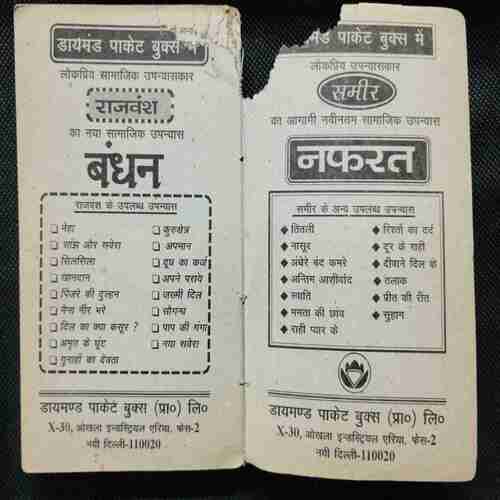 डायमंड पाकेट बुक्स में
लोकप्रिय सामाजिक उपन्यासकार
राजवंश
का नया सामाजिक उपन्यास
बंधन
राजवंश के उपलब्ध उपन्यास
मेहा
सांझ और सवेरा
सिलसिला
खानदान
पिंजरे की दुल्हन
नैना नीर भरे
दिल का क्या कसूर ?
अमृत के घूंट
गुनाहों का देवता
कुरुक्षेत्र
अपमान
दूध का कर्ज
अपने पराये
जख्मी दिल
सौगन्ध
पाप की गंगा
नया सवेरा
डायमण्ड पाकेट बुक्स (प्रा०) लि०
X-30, ओखला इन्डस्ट्रियल एरिया, फेस-2
नयी दिल्ली-110020
डायमंड पाकेट बुक्स में
लोकप्रिय सामाजिक उपन्यासकार
समीर
का आगामी नवीनतम सामाजिक उपन्यास
नफरत
समीर के अन्य उपलब्ध उपन्यास
तितली
नासूर
अंधेरे बंद कमरे
अन्तिम आशीर्वाद
स्वाति
ममता की छांव
राही प्यार के
रिश्तों का दर्द
दूर के राही
दीवाने दिल के
तलाक
प्रीत की रीत
सुहाग
डायमण्ड पाकेट बुक्स (प्रा०) लि०
X-30, ओखला इन्डस्ट्रियल एरिया, फेस-2
नयी दिल्ली-110020